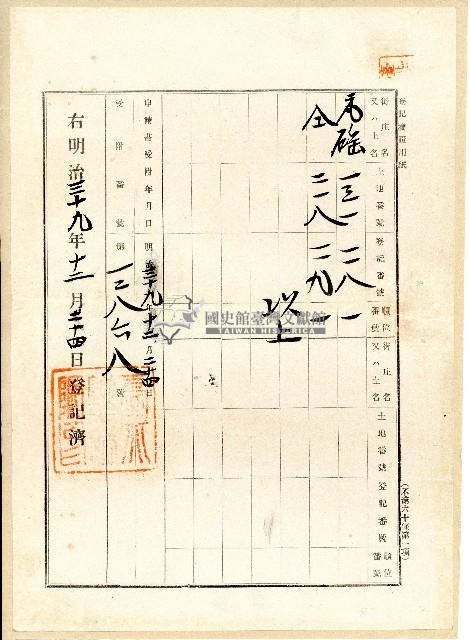 登記濟證用紙
街庄名又ハ土名 土地番號 登記番號 順位番號 街庄名又ハ土名 土地番號 登記番號 順位番號
一三一 二八一 一
仝 二八 二九一 一
以上
申請書受附年月日 明治三十九年十二月二十四日
受附番號 第一二八六八號
右明治三十九年十二月二十四日登記濟
國史館臺灣文獻館
TAIWAN HISTORICA